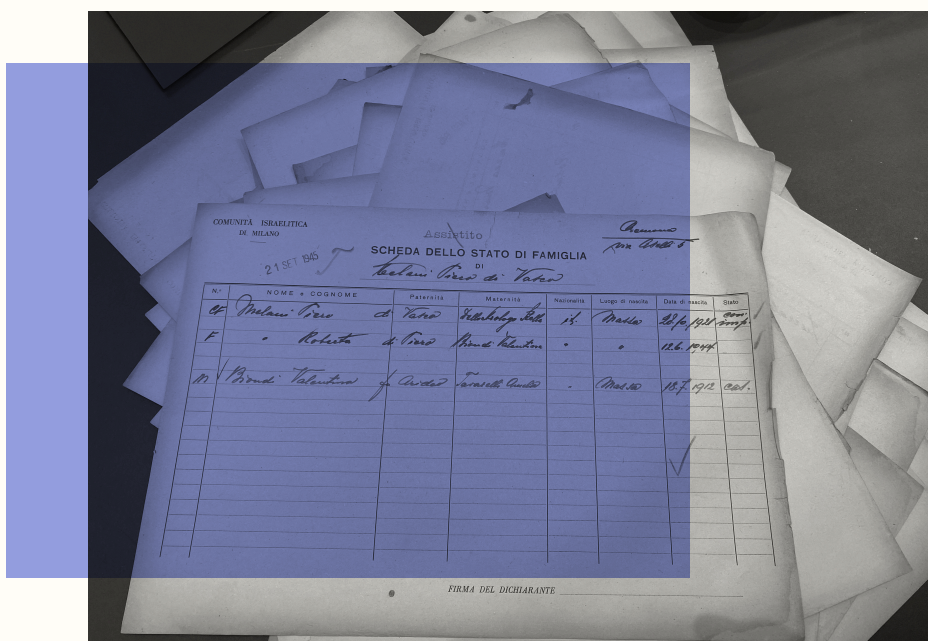 COMUNITÀ ISRAELITICA
DI MILANO
Assistito
Cremona
21 SET 1945
SCHEDA DELLO STATO DI FAMIGLIA
DI
Melani Piero di Vasco
N.° NOME e COGNOME Paternità Maternità Nazionalità Luogo di nascita Data di nascita Stato
Melani Piero di Vasco it. Massa
F " Roberto di Piero Biondi Valentina " " 12.6.1944
m Biondi Valentina fu Massa 18.7.1912
FIRMA DEL DICHIARANTE